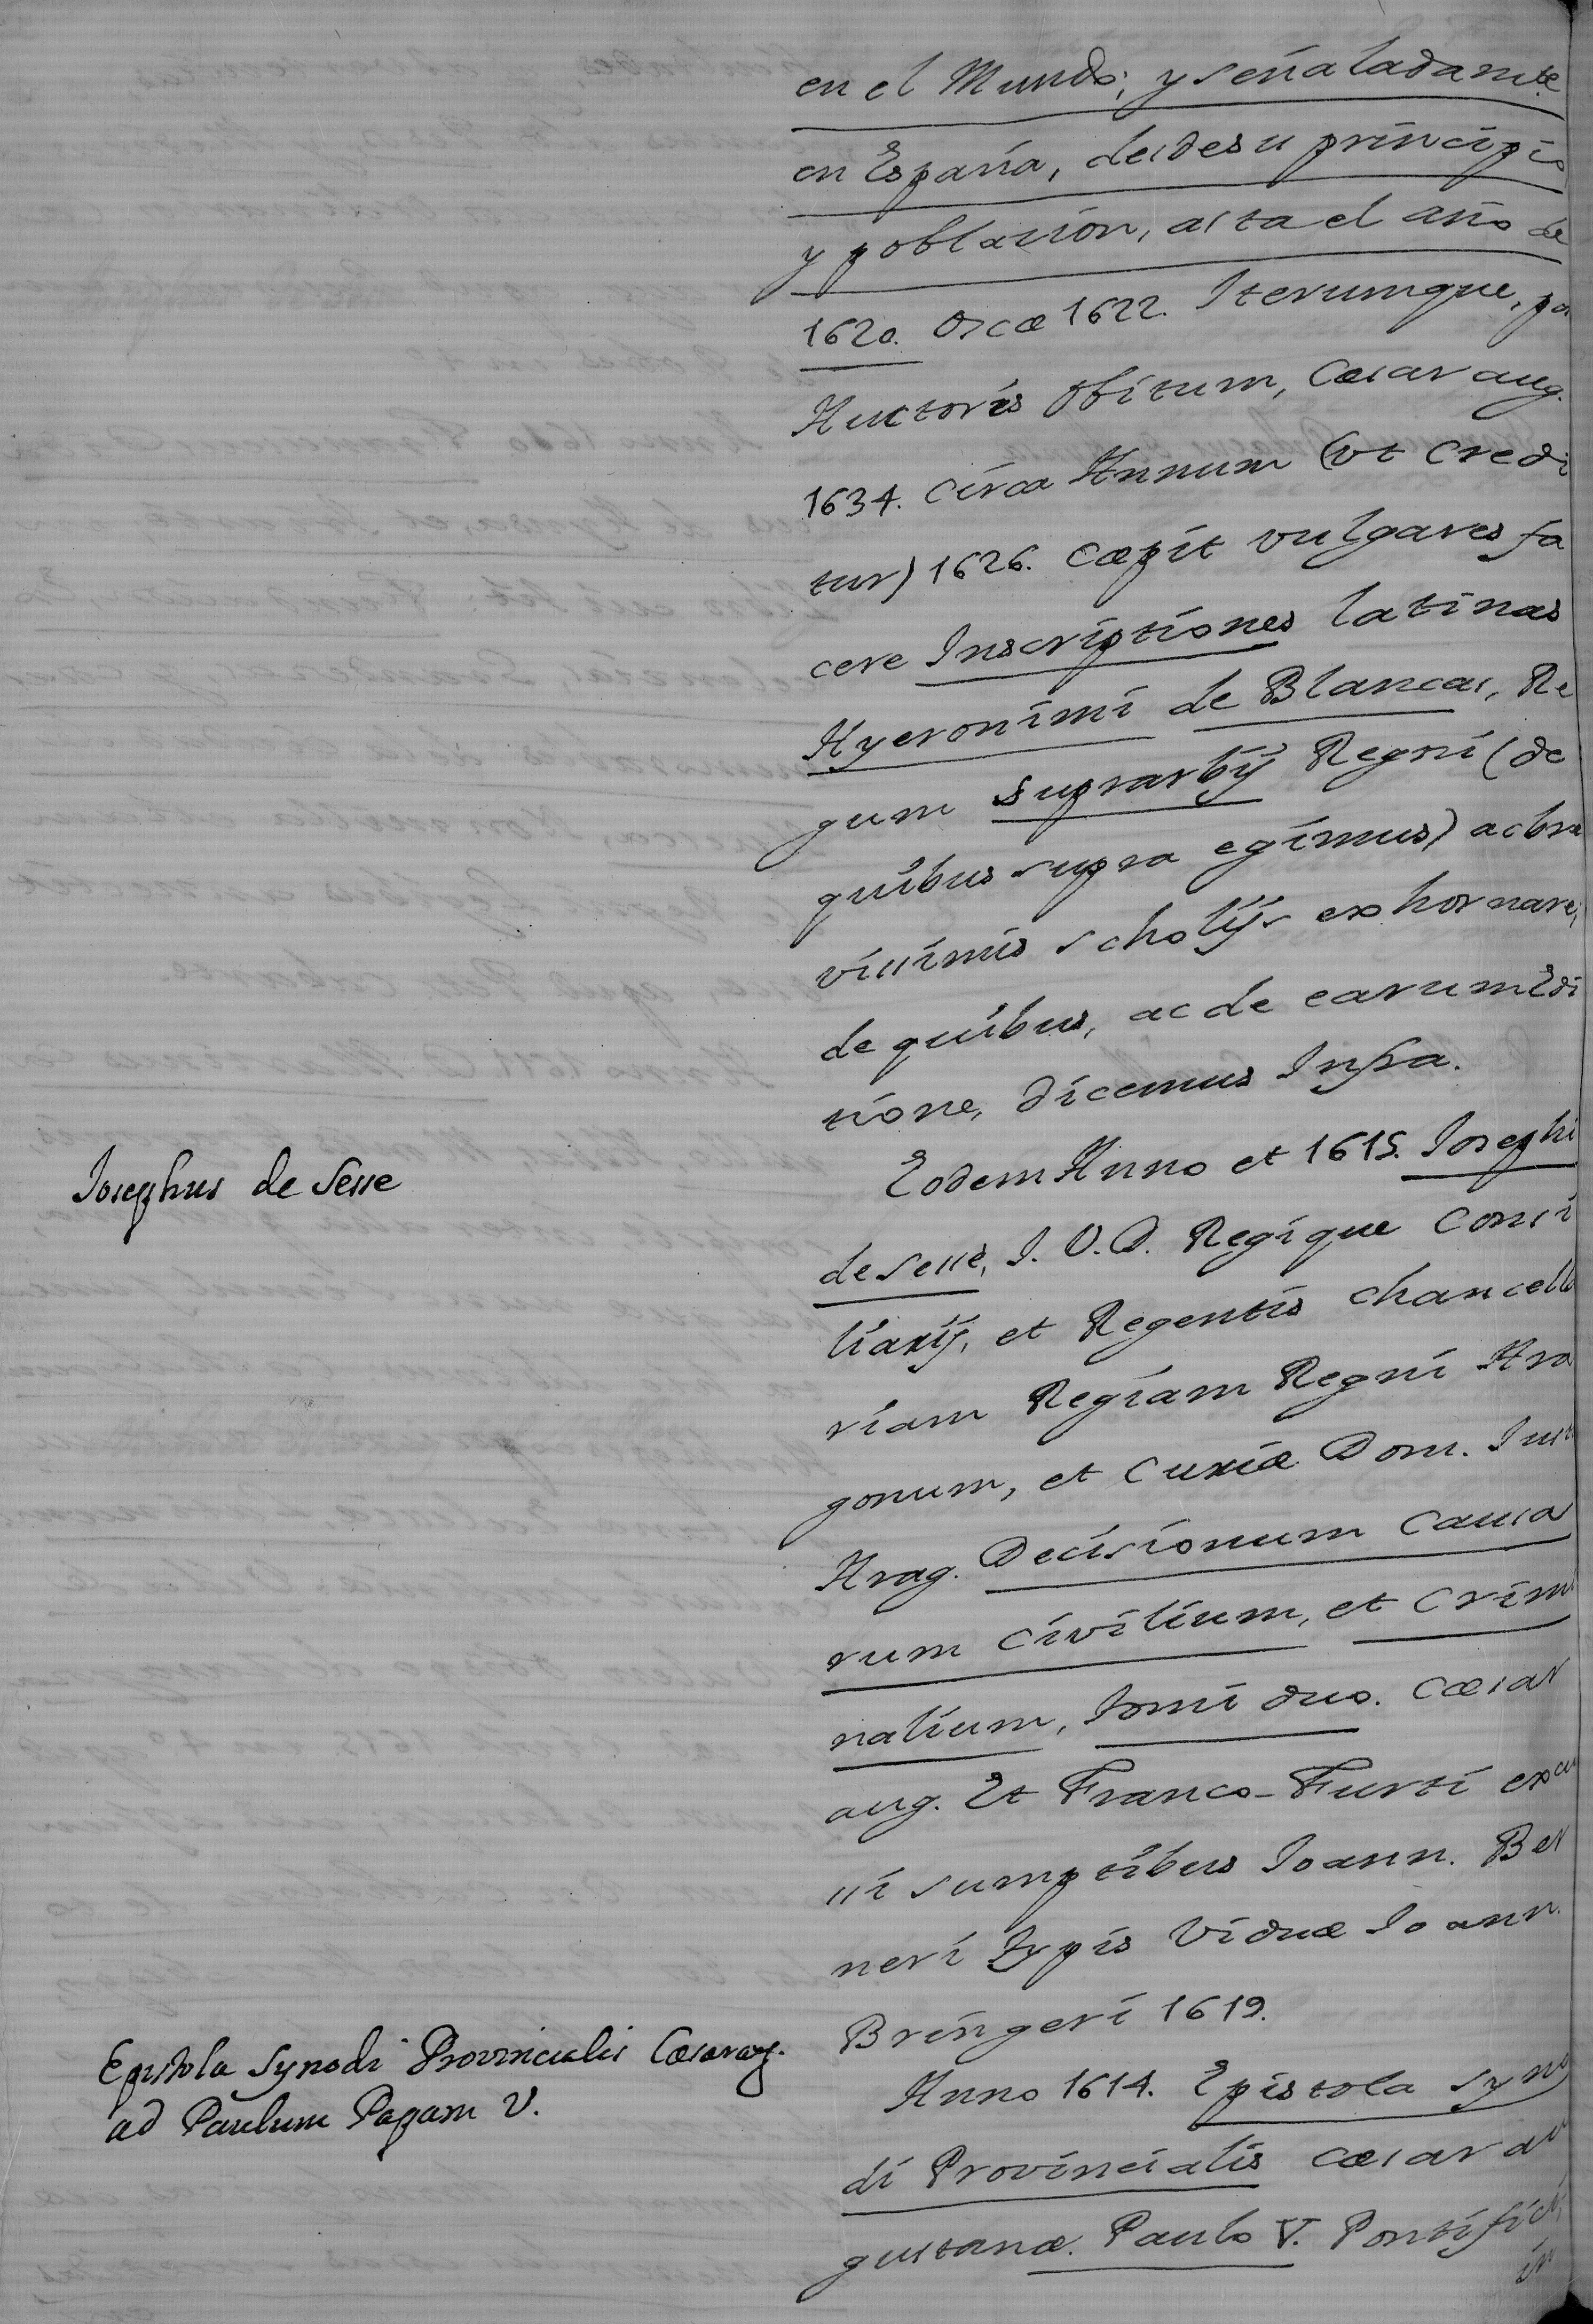 en el Mundo; y señaladamte.
en España, desde su principio
y poblacion, asta el año de
1620. Oscæ 1622. Iterumque, po
Auctoris obitum, Cæsaraug.
1634. Circa Annum (vt Credi
tur) 1626. Cæpit vulgares fa
cere Inscriptiones latinas
Hyeronimi de Blancas, Re
gum suprarbij Regni (de
quibus supra egimus) ac bre
vissimis scholijs exhornare,
de quibus, ac de earum Edi
tione, dicemus Infra.
Josephus de Sesse
Eodem Anno et 1615. Josephi
de Sesse, I. V. D. Regique Consi
liarij, et Regentis Chancella
riam Regiam Regni Ara
gonum, et Curiæ Dom. Iust
Arag. Decisionum Causa
rum Civilium, et Crimi
nalium, tomi duo. Cæsar
aug. Et Franco-Furti excu
si sumptibus Joann. Ber
neri typis Viduæ Joann.
Bringeri 1619.
Epistola Synodi Provincialis Cæsaraug.
ad Paulum Papam V.
Anno 1614. Epistola Syno
di Provincialis Cæsarau
gustanæ. Paulo V. Pontifici,
in